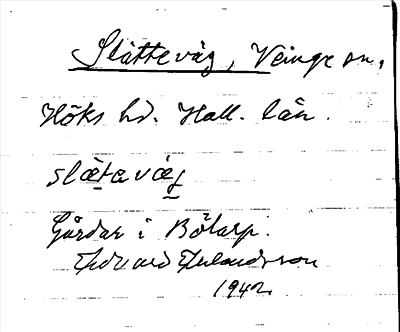 Slättevåg, Veinge sn.
Höks hd. Hall. län.
slætavåg
Gårdar i Bölarp.
Edvard Erlandsson
1942.